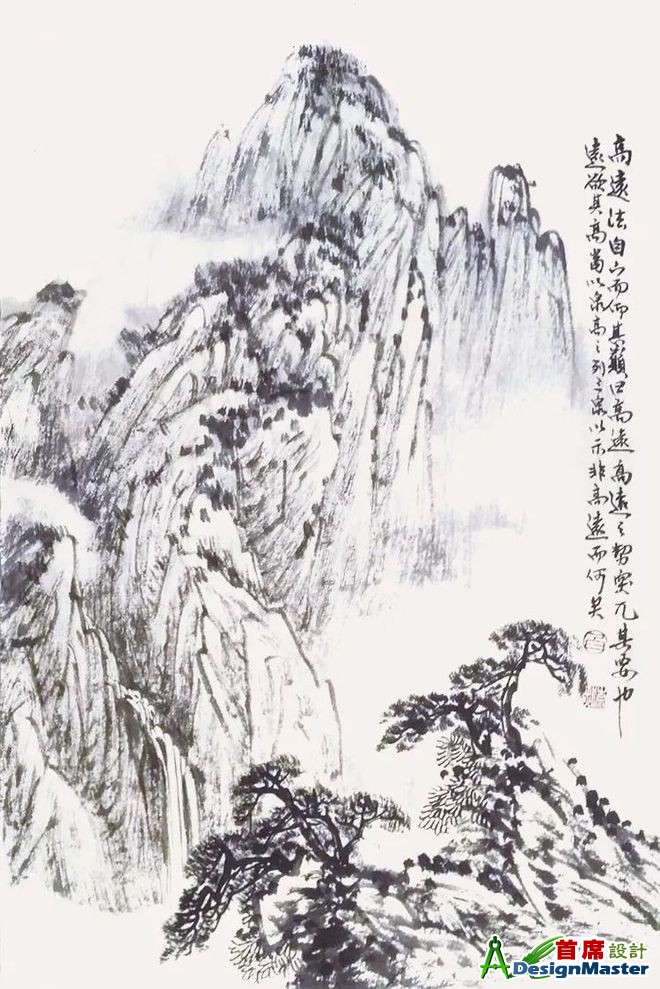 高遠法自下而仰其巔曰高遠高遠之勢突兀其要也
遠欲其高當以泉高之列泉以示非高遠而何
首席設計
ADesignMaster